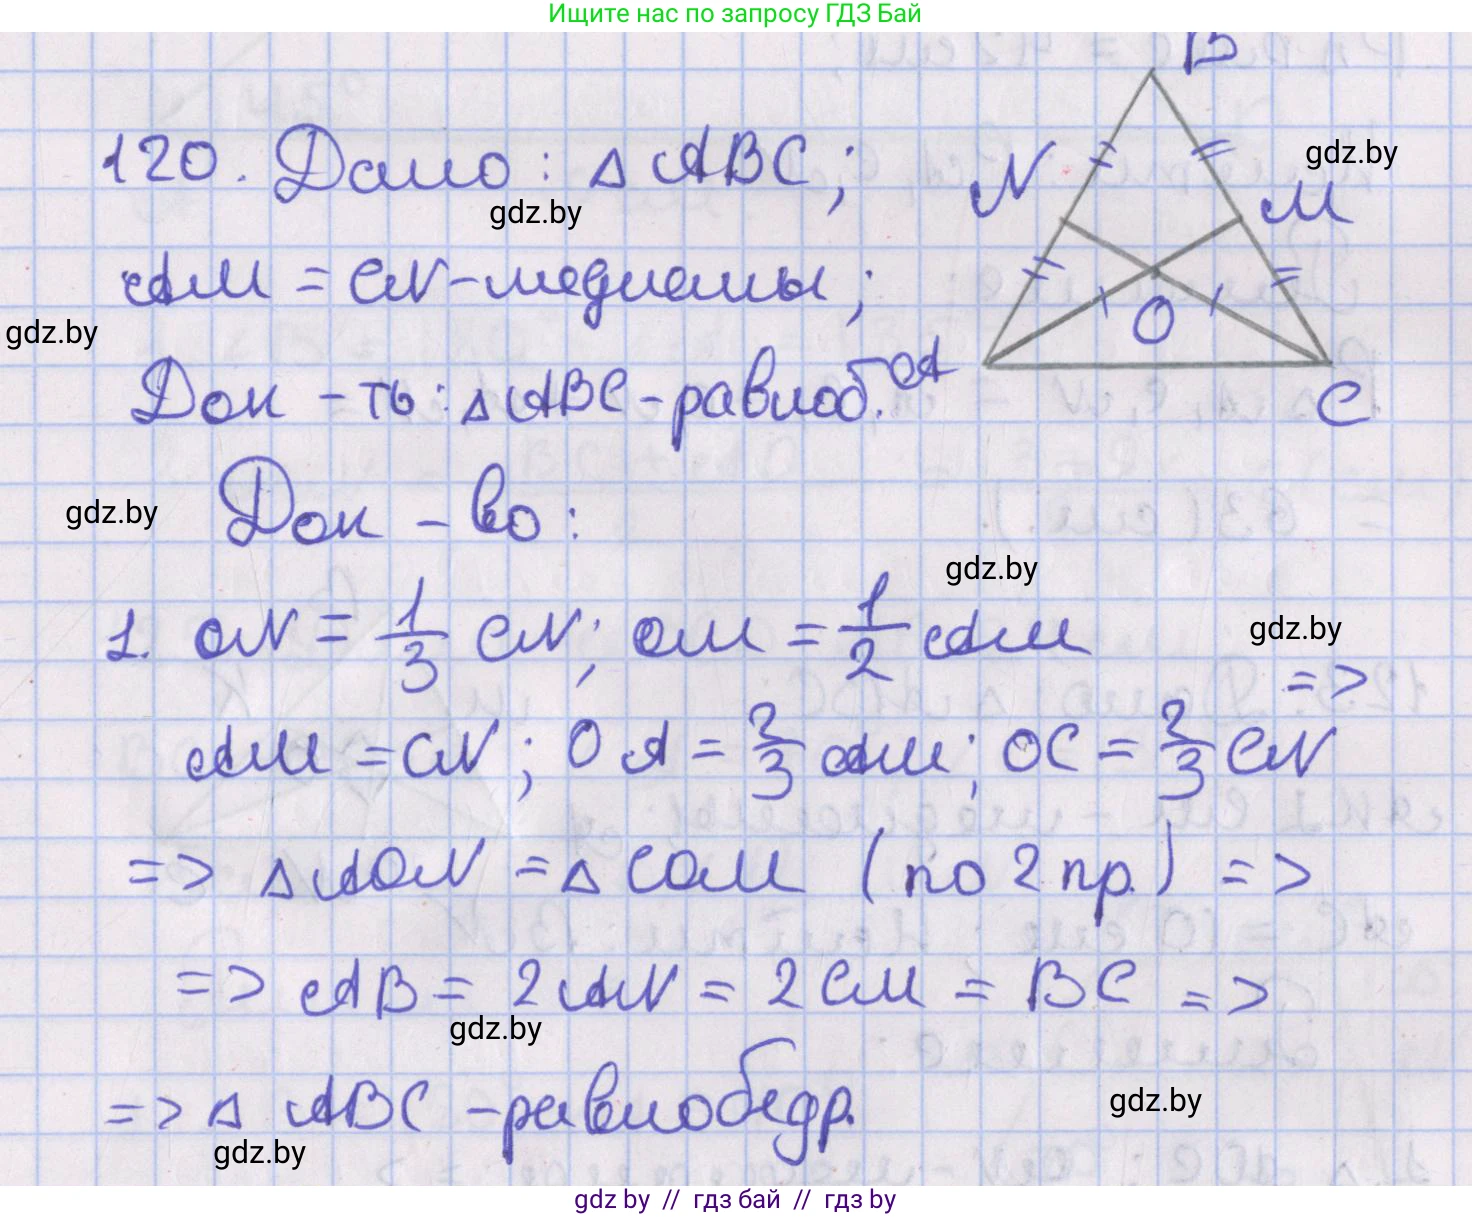 Ищите нас по запросу ГДЗ Бай
B
120. Дано: Δ ABC;
gdz.by
gdz.by
N
M
AM = CN - медианы;
gdz.by
O
Док-ть: Δ ABC - равноб.
A
C
gdz.by
Док-во:
gdz.by
1. ON = 1/3 CN; OM = 1/2 AM
gdz.by
=>
AM = CN; OA = 2/3 AM; OC = 2/3 CN
=> Δ AON = Δ COM (по 2 пр.) =>
=> AB = 2AN = 2CM = BC =>
gdz.by
=> Δ ABC - равнобедр.
gdz.by
gdz.by
gdz.by // гдз бай // гдз by